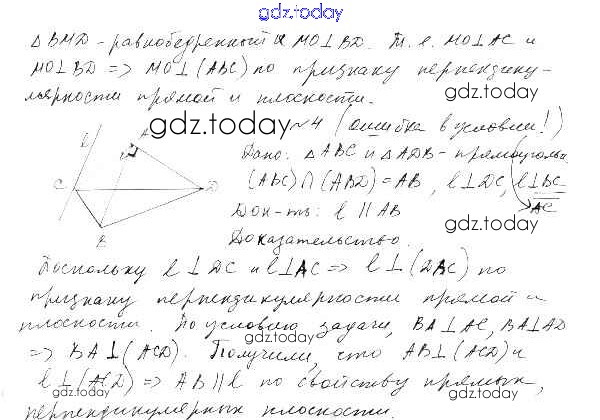 gdz.today
△BMD - равнобедренный и MO⊥BD. Т.е. MO⊥AC и
MO⊥BD => MO⊥(ABC) по признаку перпендику-
лярности прямой и плоскости.
gdz.today
gdz.today
№4 (ошибка в условии!)
Дано: △ABC и △ADB - прямоугольн
(ABC)∩(ABD)=AB, l⊥DC, l⊥BC
AC
Док-ть: l ∥ AB
gdz.today
Доказательство.
l
A
C
D
B
Поскольку l⊥DC и l⊥AC => l⊥(DAC) по
признаку перпендикулярности прямой и
плоскости. По условию задачи, BA⊥AC, BA⊥AD
gdz.today
=> BA⊥(ACD). Получили, что AB⊥(ACD) и
l⊥(ACD) => AB∥l по свойству прямых,
gdz.today
gdz.today
перпендикулярных плоскости.